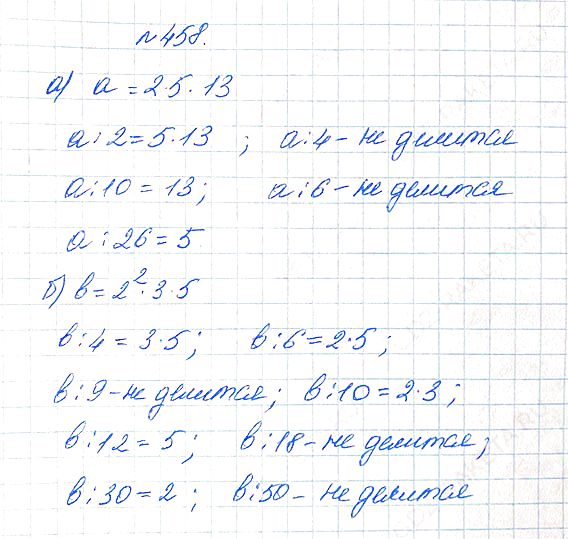 №458.
а) a = 2·5·13
a:2=5·13 ; a:4 – не делится
a:10 = 13; a:6 – не делится
a:26=5
б) b=2²·3·5
b:4 = 3·5; b:6=2·5;
b:9 – не делится; b:10=2·3;
b:12=5; b:18 – не делится;
b:30=2; b:50 – не делится